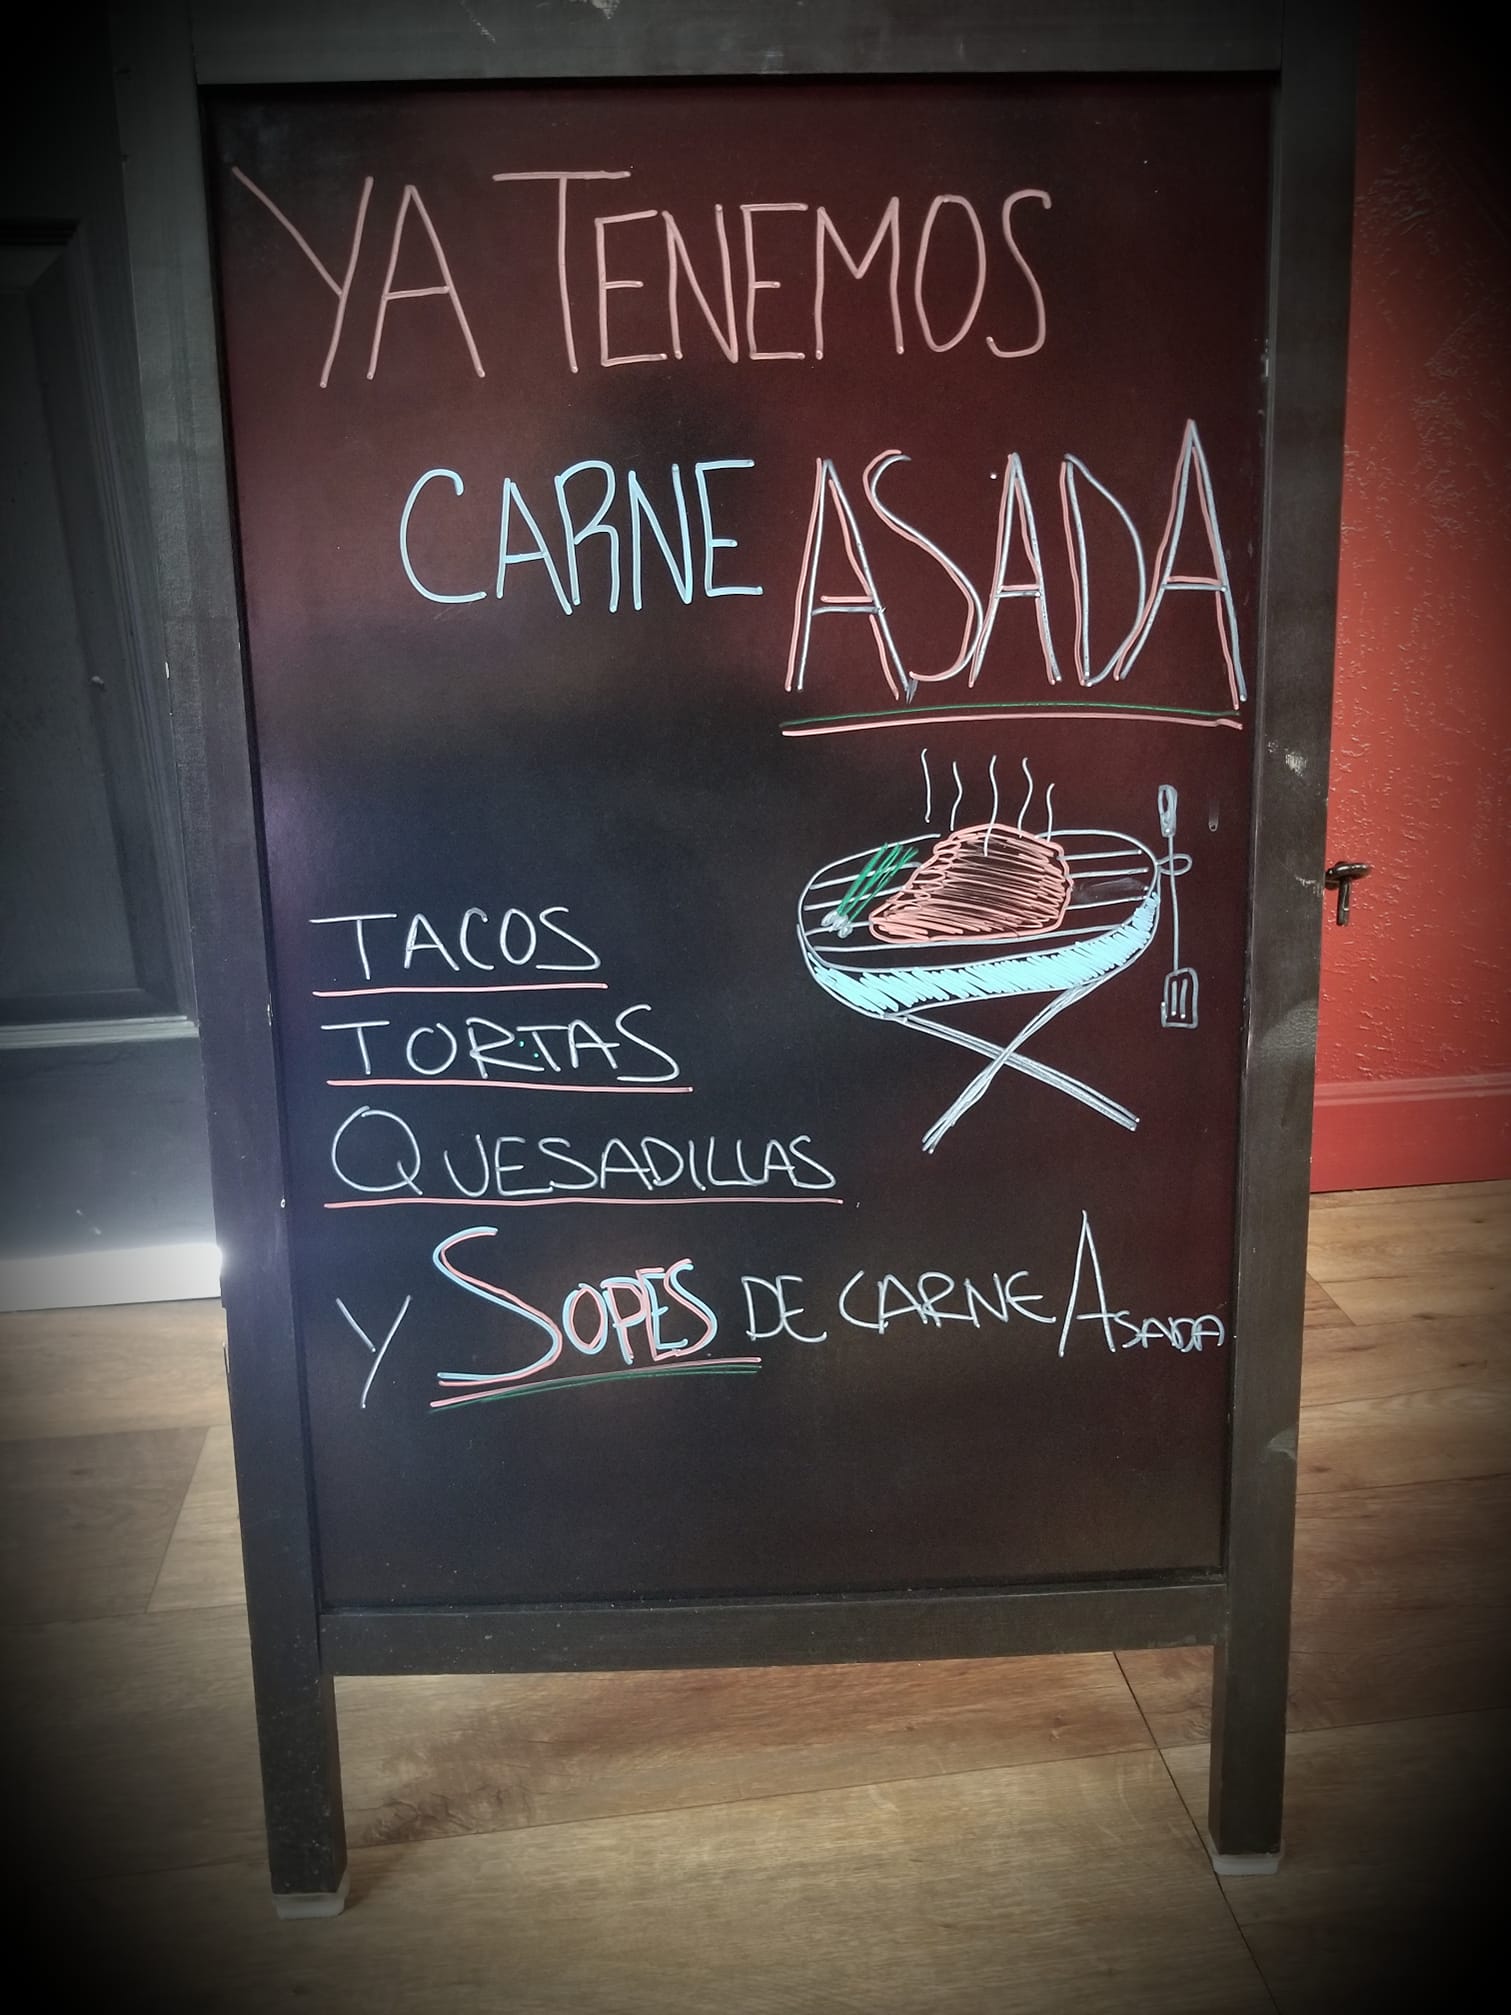 YA TENEMOS
CARNE ASADA
TACOS
TORTAS
QUESADILLAS
Y SOPES DE CARNE ASADA